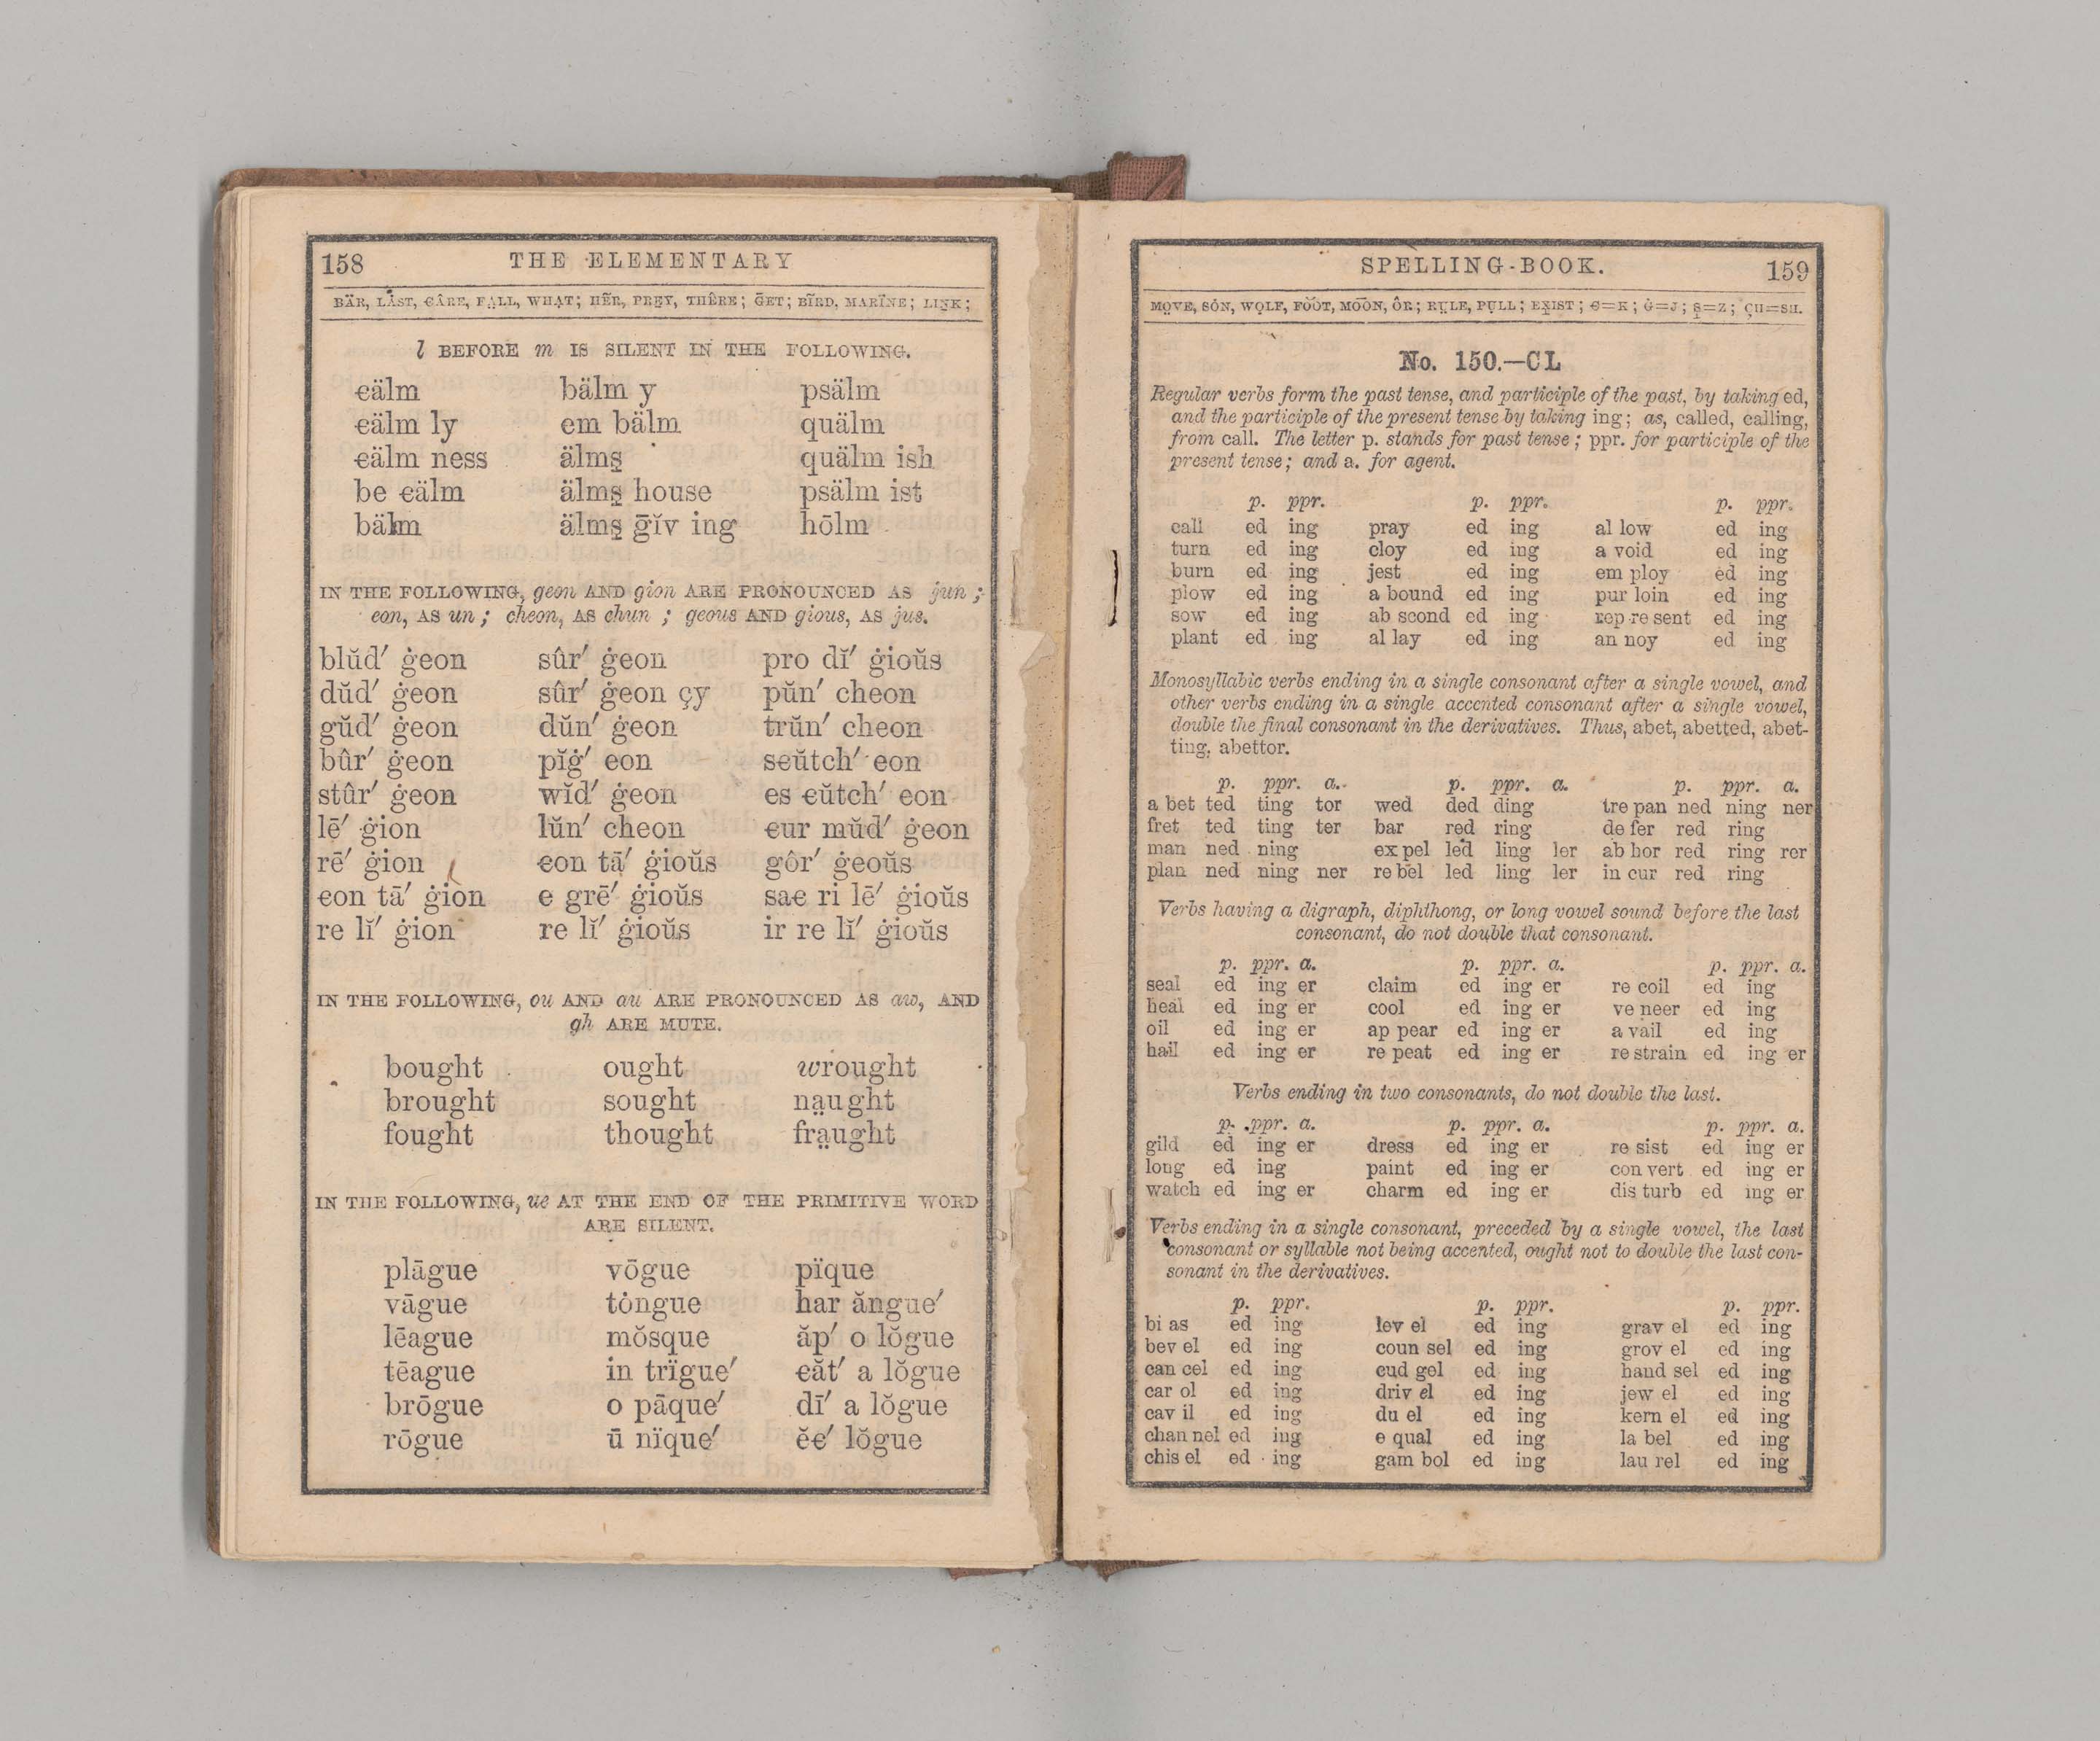 158 THE ELEMENTARY
BÄR, LÅST, ꞒÂRE, FẠLL, WHẠT; HẼR, PREY, THÊRE; ḠET; BĨRD, MARÏNE; LIṈK;
l BEFORE m IS SILENT IN THE FOLLOWING.
ꞓälm bälm y psälm
ꞓälm ly em bälm quälm
ꞓälm ness älmṣ quälm ish
be ꞓälm älmṣ house psälm ist
bälm älmṣ ḡĭv ing hōlm
IN THE FOLLOWING, geon AND gion ARE PRONOUNCED AS jun;
eon, AS un; cheon, AS chun; geous AND gious, AS jus.
blŭd′ ġeon sûr′ ġeon pro dĭ′ ġioŭs
dŭd′ ġeon sûr′ ġeon çy pŭn′ cheon
gŭd′ ġeon dŭn′ ġeon trŭn′ cheon
bûr′ ġeon pĭġ′ eon sꞓŭtch′ eon
stûr′ ġeon wĭd′ ġeon es ꞓŭtch′ eon
lē′ ġion lŭn′ cheon ꞓur mŭd′ ġeon
rē′ ġion ꞓon tā′ ġioŭs gôr′ ġeoŭs
ꞓon tā′ ġion e grē′ ġioŭs saꞓ ri lē′ ġioŭs
re lĭ′ ġion re lĭ′ ġioŭs ir re lĭ′ ġioŭs
IN THE FOLLOWING, ou AND au ARE PRONOUNCED AS aw, AND
gh ARE MUTE.
bought ought wrought
brought sought na̤ught
fought thought fra̤ught
IN THE FOLLOWING, ue AT THE END OF THE PRIMITIVE WORD
ARE SILENT.
plāgue vōgue pïque
vāgue tȯngue har ăngue′
lēague mŏsque ăp′ o lŏgue
tēague in trïgue′ ꞓăt′ a lŏgue
brōgue o pāque′ dī′ a lŏgue
rōgue ū nïque′ ĕꞓ′ lŏgue
SPELLING-BOOK. 159
MO̤VE, SȮN, WOLF, FO͝OT, MO͞ON, ÔR; RṲLE, PṲLL; EX̱IST; Ꞓ=K; Ġ=J; Ṣ=Z; ÇH=SH.
No. 150.—CL
Regular verbs form the past tense, and participle of the past, by taking ed,
and the participle of the present tense by taking ing; as, called, calling,
from call. The letter p. stands for past tense; ppr. for participle of the
present tense; and a. for agent.
p. ppr. p. ppr. p. ppr.
call ed ing pray ed ing al low ed ing
turn ed ing cloy ed ing a void ed ing
burn ed ing jest ed ing em ploy ed ing
plow ed ing a bound ed ing pur loin ed ing
sow ed ing ab scond ed ing rep re sent ed ing
plant ed ing al lay ed ing an noy ed ing
Monosyllabic verbs ending in a single consonant after a single vowel, and
other verbs ending in a single accented consonant after a single vowel,
double the final consonant in the derivatives. Thus, abet, abetted, abet-
ting, abettor.
p. ppr. a. p. ppr. a. p. ppr. a.
a bet ted ting tor wed ded ding tre pan ned ning ner
fret ted ting ter bar red ring de fer red ring
man ned ning ex pel led ling ler ab hor red ring rer
plan ned ning ner re bel led ling ler in cur red ring
Verbs having a digraph, diphthong, or long vowel sound before the last
consonant, do not double that consonant.
p. ppr. a. p. ppr. a. p. ppr. a.
seal ed ing er claim ed ing er re coil ed ing
heal ed ing er cool ed ing er ve neer ed ing
oil ed ing er ap pear ed ing er a vail ed ing
hail ed ing er re peat ed ing er re strain ed ing er
Verbs ending in two consonants, do not double the last.
p. ppr. a. p. ppr. a. p. ppr. a.
gild ed ing er dress ed ing er re sist ed ing er
long ed ing paint ed ing er con vert ed ing er
watch ed ing er charm ed ing er dis turb ed ing er
Verbs ending in a single consonant, preceded by a single vowel, the last
consonant or syllable not being accented, ought not to double the last con-
sonant in the derivatives.
p. ppr. p. ppr. p. ppr.
bi as ed ing lev el ed ing grav el ed ing
bev el ed ing coun sel ed ing grov el ed ing
can cel ed ing cud gel ed ing hand sel ed ing
car ol ed ing driv el ed ing jew el ed ing
cav il ed ing du el ed ing kern el ed ing
chan nel ed ing e qual ed ing la bel ed ing
chis el ed ing gam bol ed ing lau rel ed ing